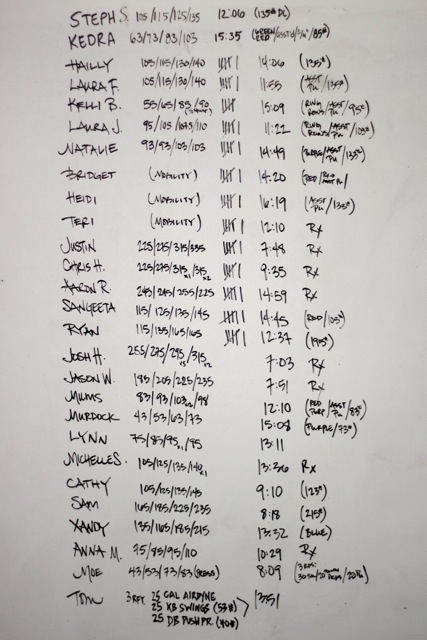 STEPH S. 105/115/125/135 12:06 (135# DL)
KEDRA 63/73/93/103 15:35
HAILLY 105/115/130/140 14:06 (135#)
LAURA F. 105/115/130/140 11:55 (ASST PU/135#)
KELLI B. 55/65/85/90 15:09 (RING ROWS/ASST PU/95#)
LAURA J. 95/105/107.5/110 11:22 (RING ROWS/ASST PU/105#)
NATALIE 93/93/103/103 14:49
BRIDGET (MOBILITY) 14:20
HEIDI (MOBILITY) 16:19 (ASST PU/135#)
TERI (MOBILITY) 12:10 Rx
JUSTIN 225/275/315/335 7:48 Rx
CHRIS H. 225/275/315x1/315x2 9:35 Rx
AARON R. 245/245/255/225 14:59 Rx
SANGEETA 115/125/135/145 14:45 (RED/105#)
RYAN 115/135/165/165 12:37 (195#)
JOSH H. 255/275/295/315 7:03 Rx
JASON W. 185/205/225/235 7:51 Rx
MUMS 83/93/103x2/98 12:10 (RED PURP/ASST PU/85#)
MURDOCK 43/53/63/73 15:08 (PURPLE/73#)
LYNN 75/85/95x1/95 13:11
MICHELLE S. 105/125/135/140x1 13:36 Rx
CATHY 105/125/135/145 9:10 (123#)
SAM 165/185/225/235 8:18 (215#)
XANDY 135/165/185/215 13:32 (BLUE)
ANNA M. 75/85/95/110 10:29 Rx
MOE 43/53/73/83 (PRESS) 8:09
TOM 3 RFT. 25 CAL AIRDYNE 13:51
25 KB SWINGS (53#)
25 DB PUSH PR. (40#)